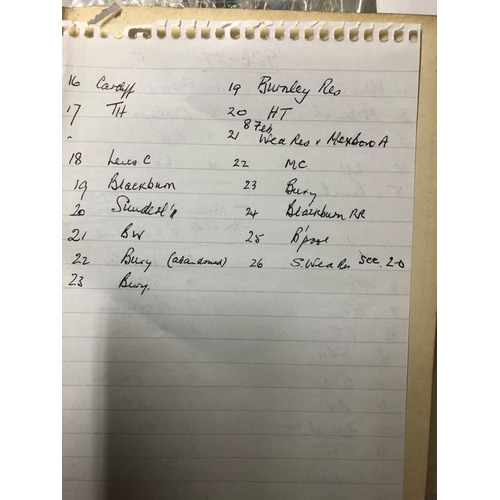 16 Cardiff 19 Burnley Res
17 TH 20 HT
- 8 Feb
21 Wea Res v Mexboro A
18 Leics C 22 MC
19 Blackburn 23 Bury
20 Sunderl'd 24 Blackburn RR
21 BW 25 B'pool
22 Bury (abandoned) 26 S. Wea Res see 2-0
23 Bury.